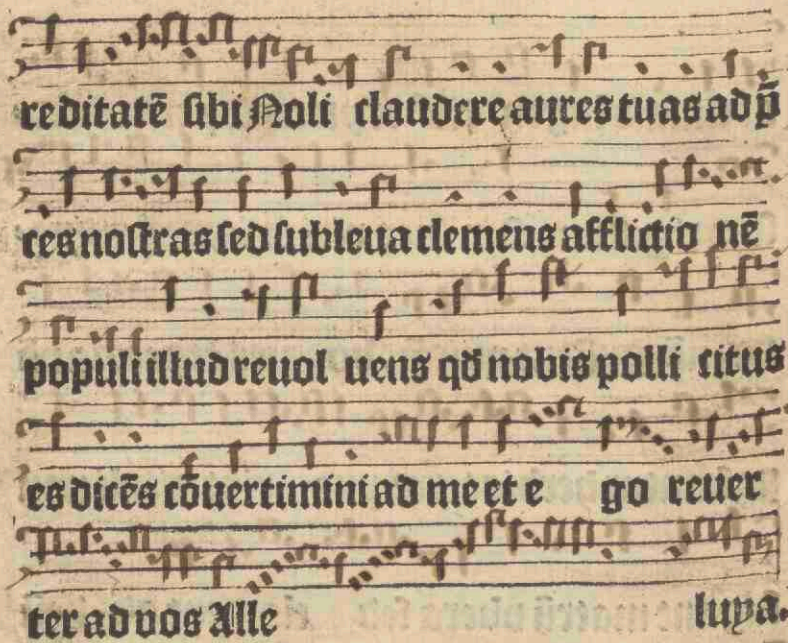 reditatē sibi Noli claudere aures tuas ad p̄
ces nostras sed subleua clemens afflictio nē
populi illud reuol uens qđ nobis polli citus
es dicēs cōuertimini ad me et e go reuer
ter ad uos Alle luya.